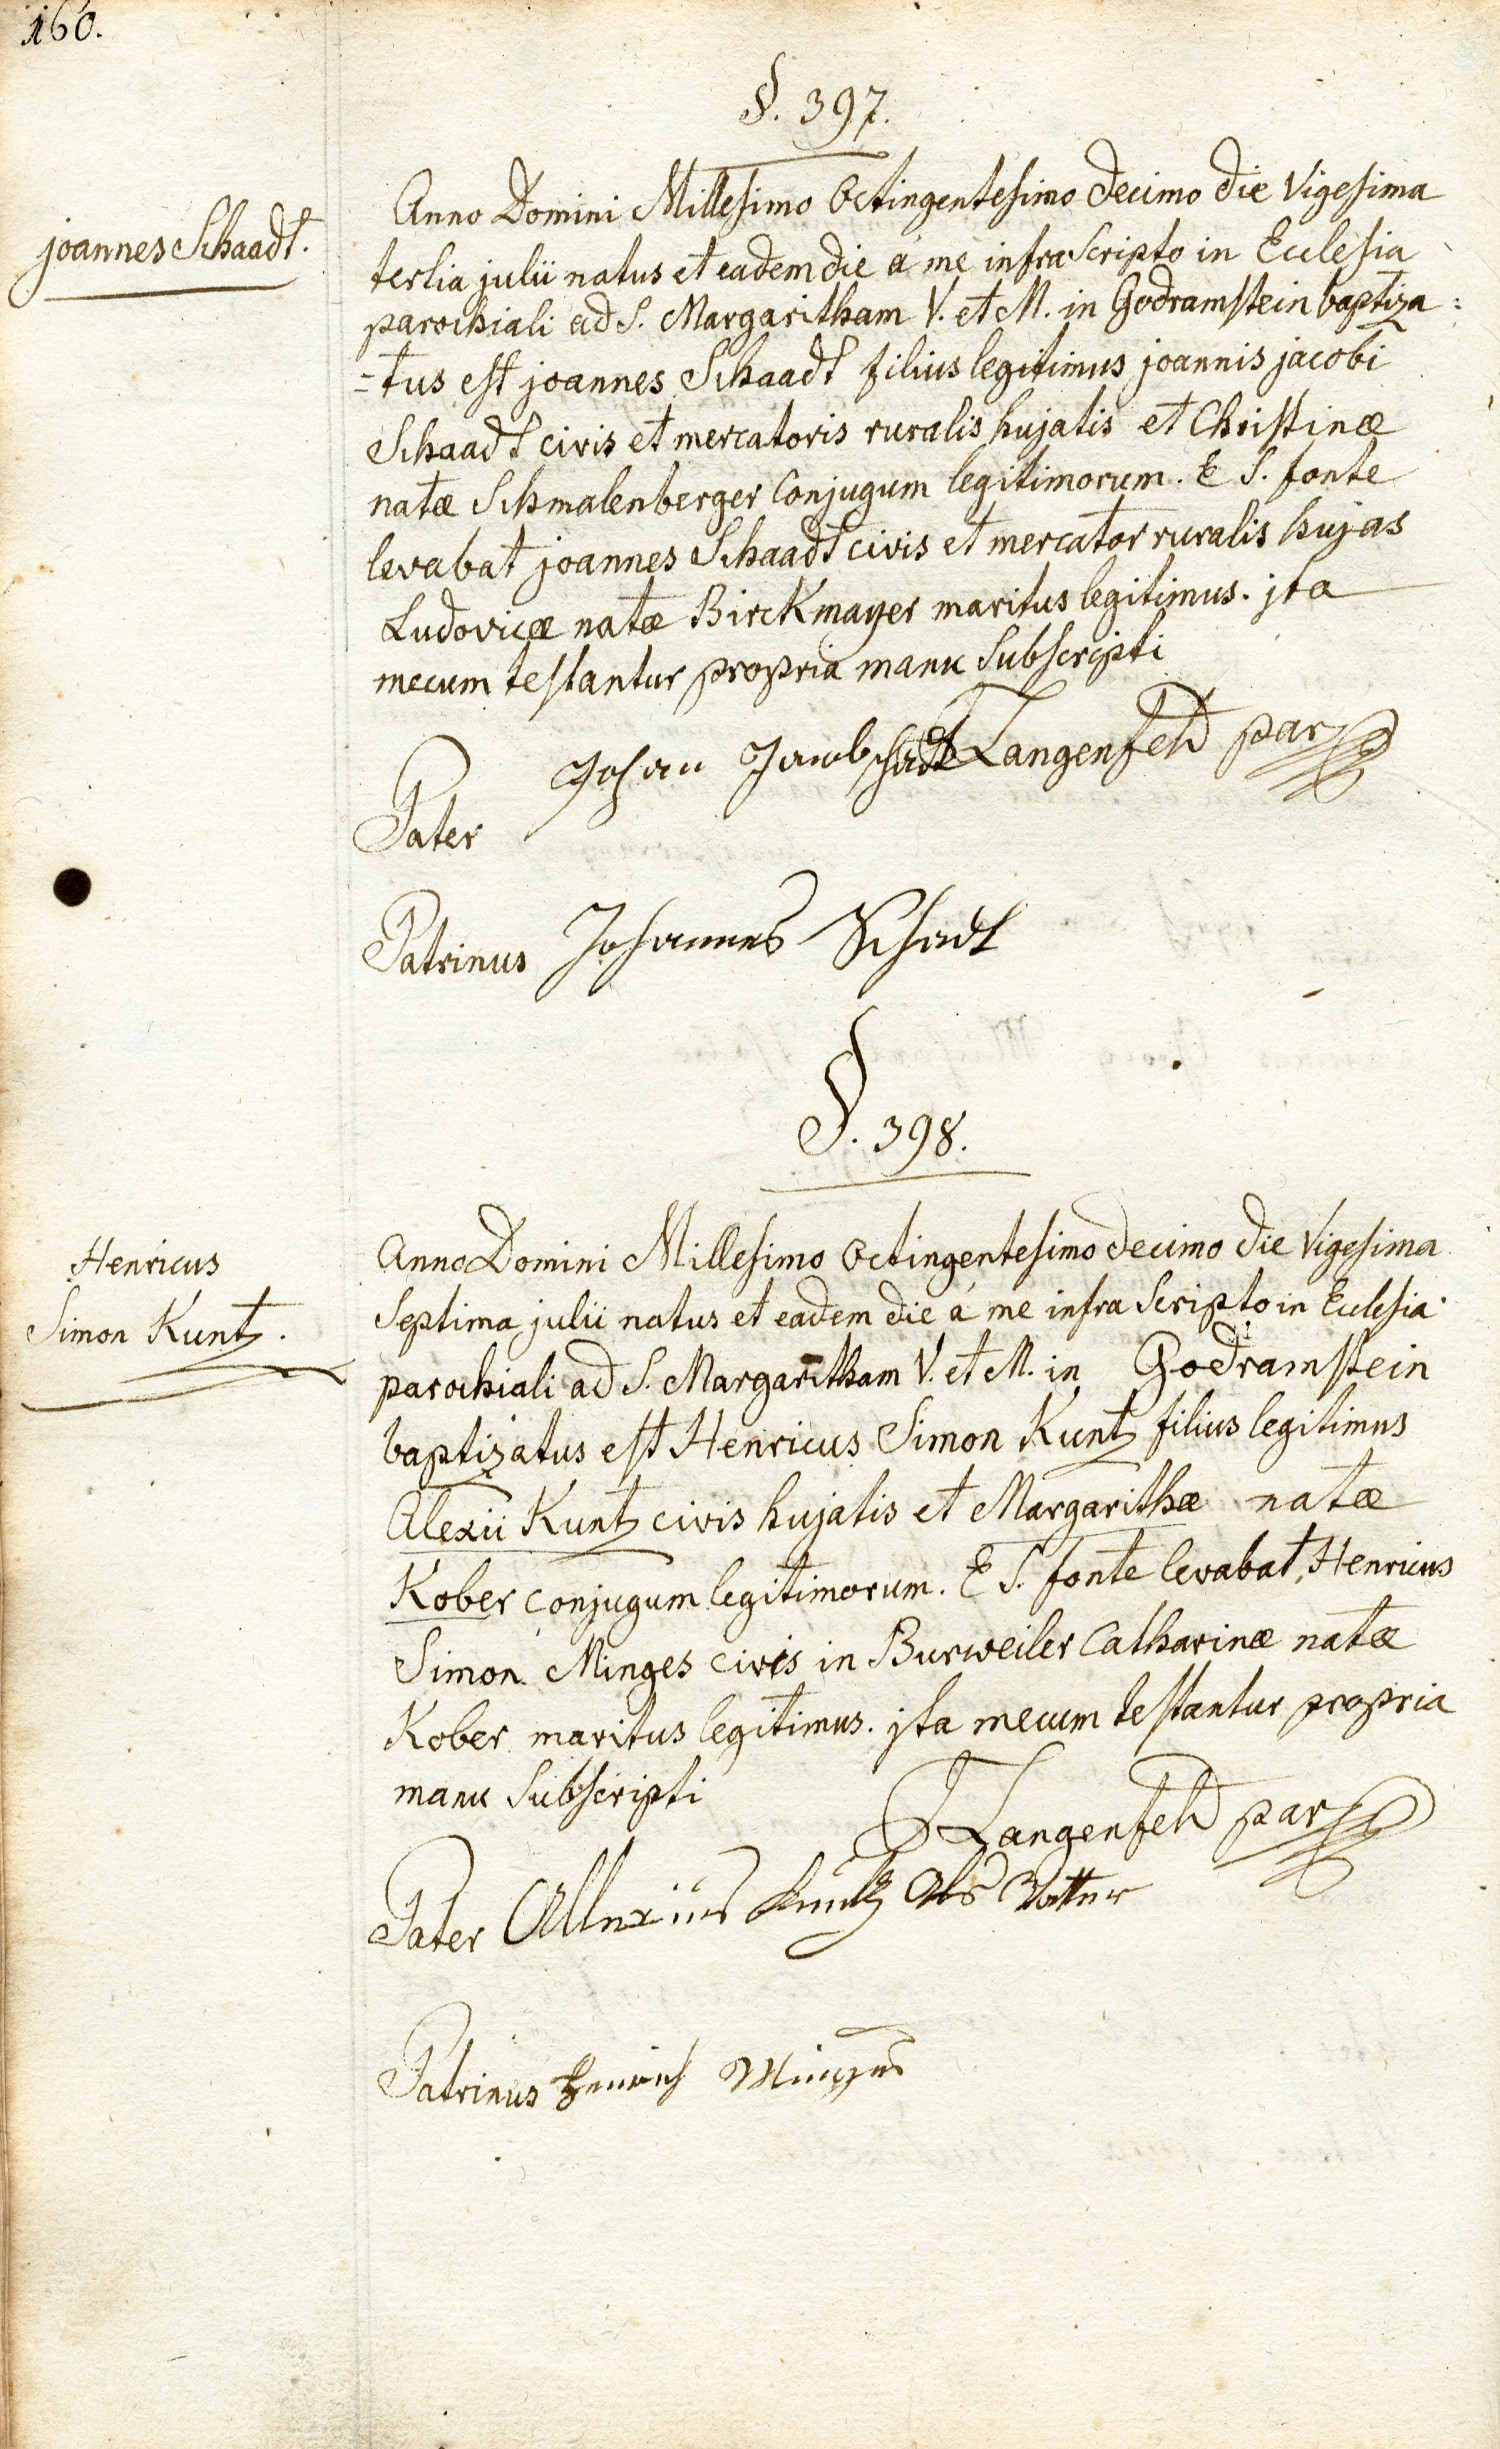 160.
§. 397.
joannes Schaadt.
Anno Domini Millesimo Octingentesimo decimo die Vigesima
tertia julii natus et eadem die á me infra Scripto in Ecclesia
parochiali ad S. Margaritham V. et M. in Godramstein baptiza=
=tus est joannes Schaadt filius legitimus joannis jacobi
Schaadt civis et mercatoris ruralis hujatis et Christinæ
natæ Schmalenberger Conjugum legitimorum. E S. fonte
levabat joannes Schaadt civis et mercator ruralis hujas
Ludovicæ natæ Birckmayer maritus legitimus. jta
mecum testantur propria manu Subscripti
Johan Jacob Schadt Langenfeld par
Pater
Patrinus Johannes Schadt
§. 398.
Henricus
Simon Kuntz.
Anno Domini Millesimo Octingentesimo decimo die Vigesima
Septima julii natus et eadem die á me infra Scripto in Ecclesia
parochiali ad S. Margaritham V. et M. in Godramstein
baptizatus est Henricus Simon Kuntz filius legitimus
Alexii Kuntz civis hujatis et Margarithæ natæ
Kober conjugum legitimorum. E S. fonte levabat Henricus
Simon Minges civis in Burweiler Catharinæ natæ
Kober maritus legitimus. jta mecum testantur propria
manu Subscripti
Langenfeld par
Pater Allexius Kuntz Als Vatter
Patrinus Henrich Minges